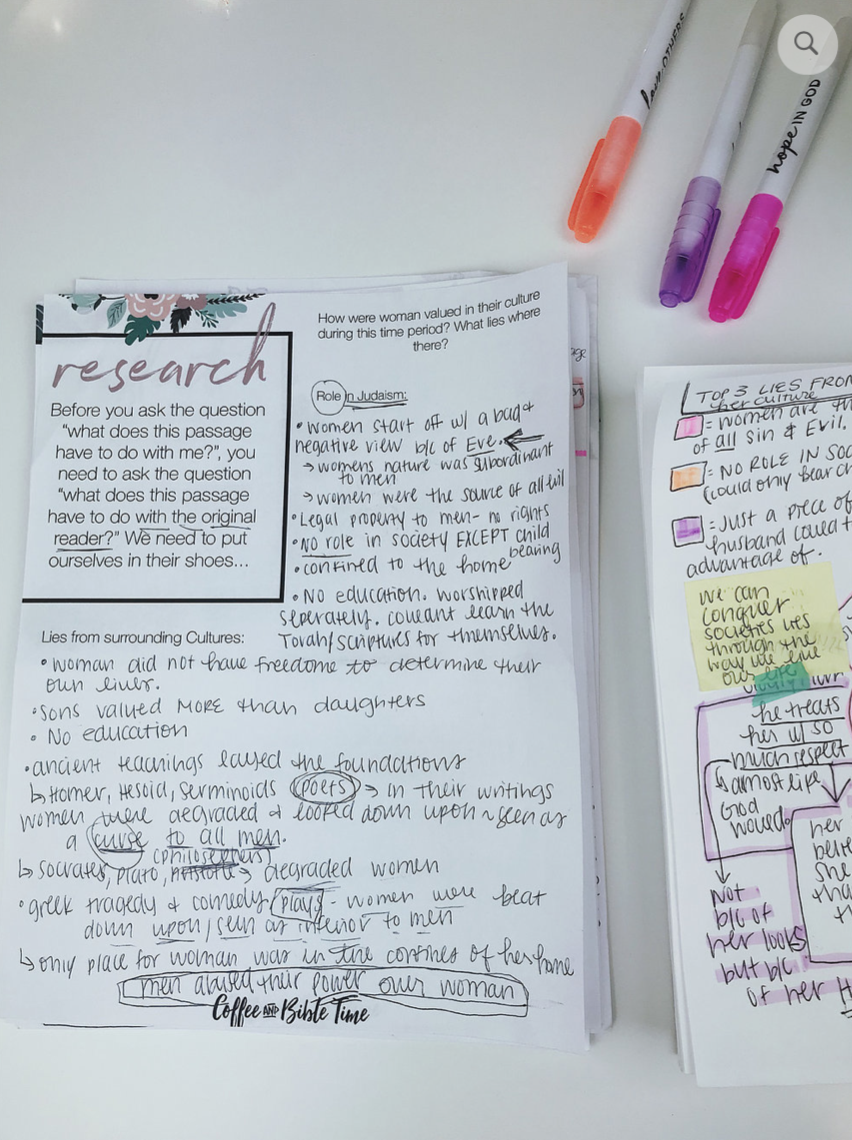 love OTHERS
hope IN GOD
How were woman valued in their culture
during this time period? What lies where
there?
research
Before you ask the question
"what does this passage
have to do with me?", you
need to ask the question
"what does this passage
have to do with the original
reader?" We need to put
ourselves in their shoes...
Role in Judaism:
• women start off w/ a bad &
negative view b/c of Eve.
→ womens nature was subordinant
to men
→ women were the source of all evil
• Legal property to men - no rights
• NO role in society EXCEPT child
bearing
• confined to the home
• NO education. worshipped
seperately. couldnt learn the
Torah/scriptures for themselves.
Lies from surrounding Cultures:
• woman did not have freedome to determine their
own lives.
• Sons valued MORE than daughters
• No education
• ancient teachings layed the foundations
↳ Homer, Hesoid, Serminoids (poets) → in their writings
women were degraded & looked down upon ~ seen as
a curse to all men.
(philosephers)
↳ Socrates, Plato, Aristotle → degraded women
• greek tragedy & comedy plays - women were beat
down upon/seen as inferior to men
↳ only place for woman was in the confines of her home
men abused their power over woman
Coffee AND Bible Time
TOP 3 LIES FROM
her culture
= women are th
of all sin & Evil.
= NO ROLE IN SOC
(could only bear ch
= Just a piece of
husband could t
advantage of.
we can
conquer
societies lies
through the
way we live
our life
he treats
her w/ so
much respect
↳ almost like
God
would.
her
belie
she
tha
th
Not
b/c of
her looks
but b/c
of her H